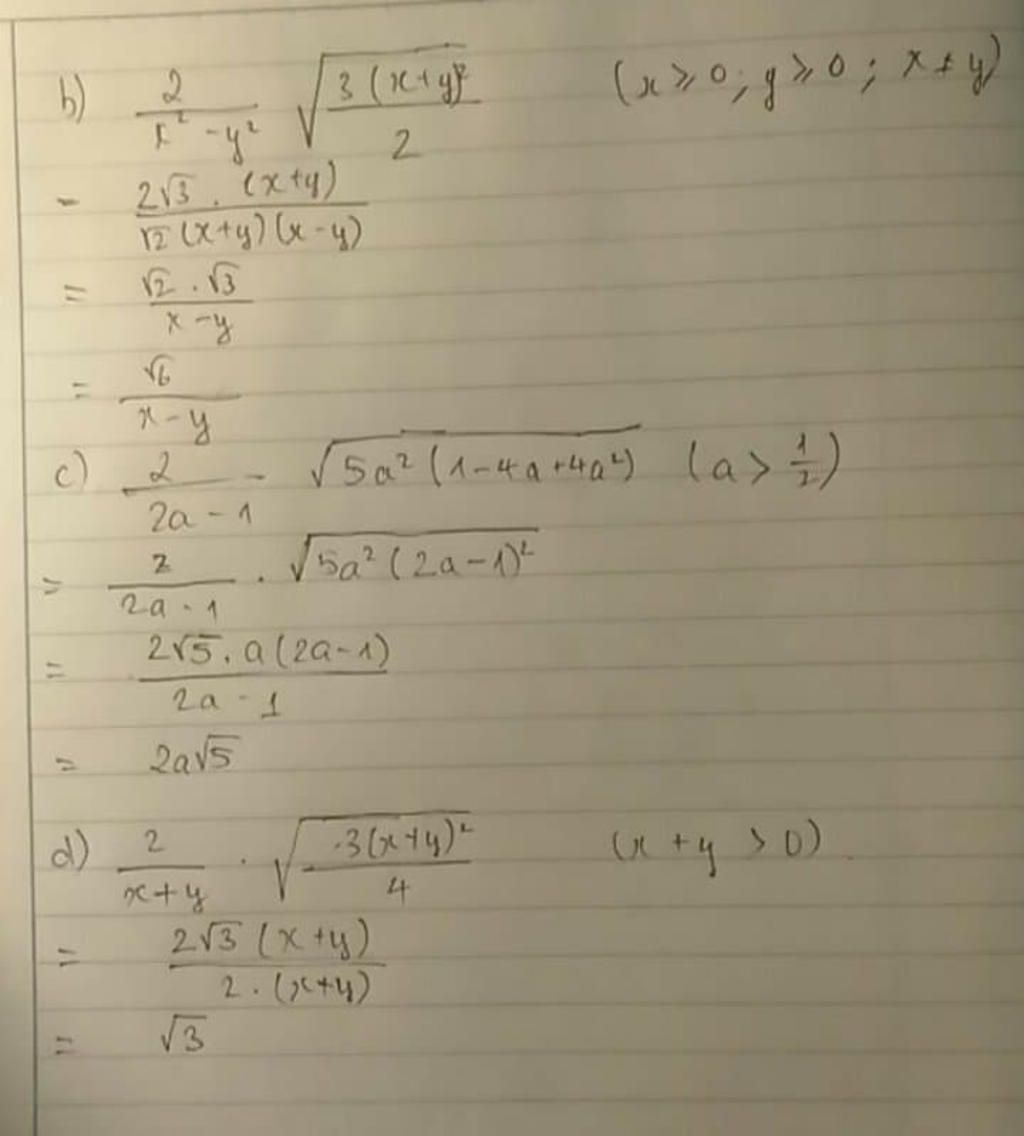 b) \frac{2}{x^2 - y^2} \sqrt{\frac{3(x+y)^2}{2}} (x ⩾ 0; y ⩾ 0; x ≠ y)
- \frac{2\sqrt{3} . (x+y)}{\sqrt{2}(x+y)(x-y)}
= \frac{\sqrt{2} . \sqrt{3}}{x-y}
= \frac{\sqrt{6}}{x-y}
c) \frac{2}{2a-1} - \sqrt{5a^2(1-4a+4a^2)} (a > \frac{1}{2})
= \frac{2}{2a-1} . \sqrt{5a^2(2a-1)^2}
= \frac{2\sqrt{5} . a(2a-1)}{2a-1}
= 2a\sqrt{5}
d) \frac{2}{x+y} . \sqrt{\frac{3(x+y)^2}{4}} (x+y > 0)
= \frac{2\sqrt{3}(x+y)}{2 . (x+y)}
= \sqrt{3}